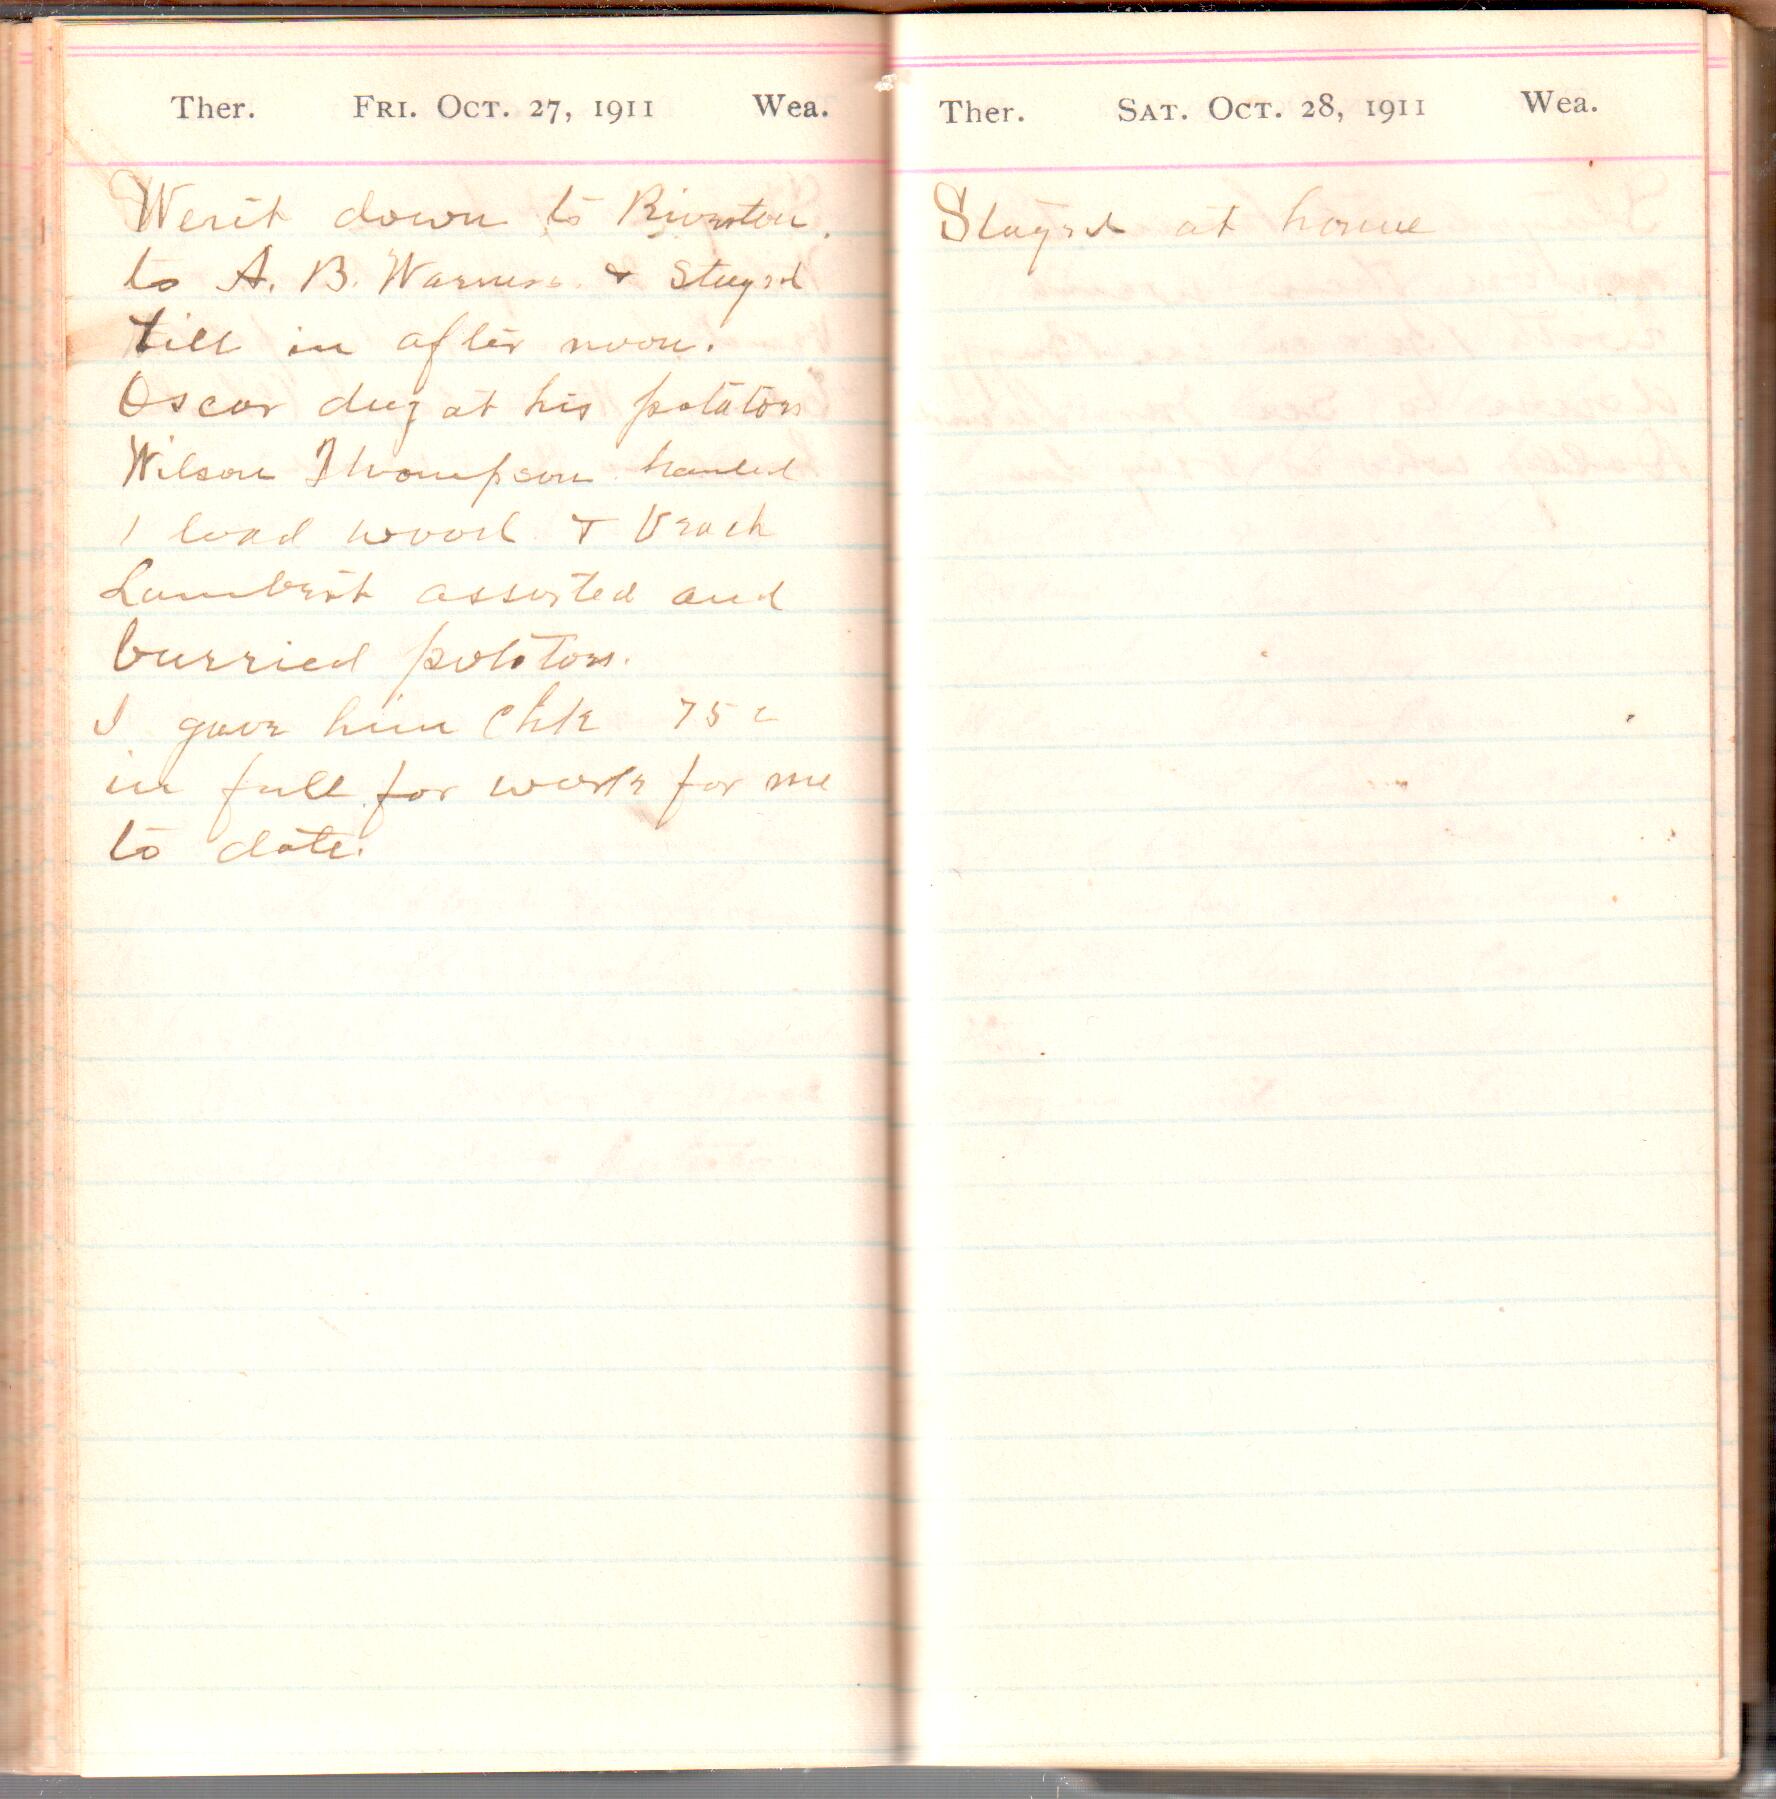 Ther. Fri. Oct. 27, 1911 Wea.
Went down to Riverton.
to A. B. Warners. & Stayed
till in after noon.
Oscar dug at his potatoes
Wilson Thompson hauled
1 load wood &
Lambert assorted and
burried potatoes.
I gave him Chk 75c
in full for work for me
to date.
Ther. Sat. Oct. 28, 1911 Wea.
Stayed at home